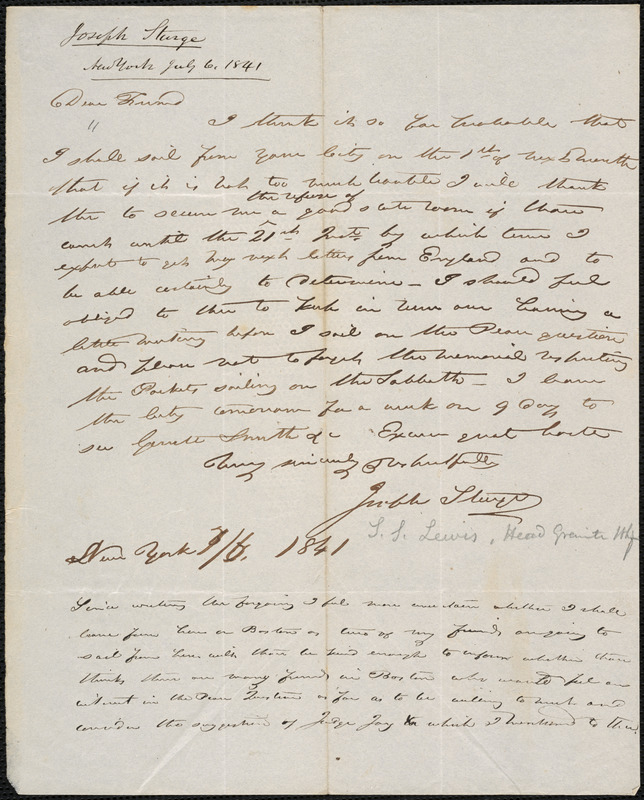 Joseph Sturge
New York July 6. 1841
Dear Friend
I think it so far probable that
I shall sail from your City on the 1st of next month
that if it is not too much trouble I will thank
the refusal of
thee to secure me a good state room if thou
canst until the 21st Inst. by which time I
expect to get my next letters from England and to
be able certainly to determine — I should feel
obliged to thee to keep in turn our having a
little meeting before I sail on the Peace question
and please not to forget the memorial respecting
the Packets sailing on the Sabbath — I leave
the city tomorrow for a week or 9 days to
see Gerrit Smith &c Excuse great haste
Very sincerely & respectfully
Joseph Sturge
S. S. Lewis, Head Granite Whf
New York 7/6. 1841
Since writing the forgoing I feel more uncertain whether I shall
leave from here or Boston as two of my friends are going to
sail from here. wilt thou be kind enough to inform whether thou
thinks there are many friends in Boston who would feel an
interest in the Peace Question so far as to be willing to meet and
consider the suggestion of Judge Jay to which I mentioned to thee.